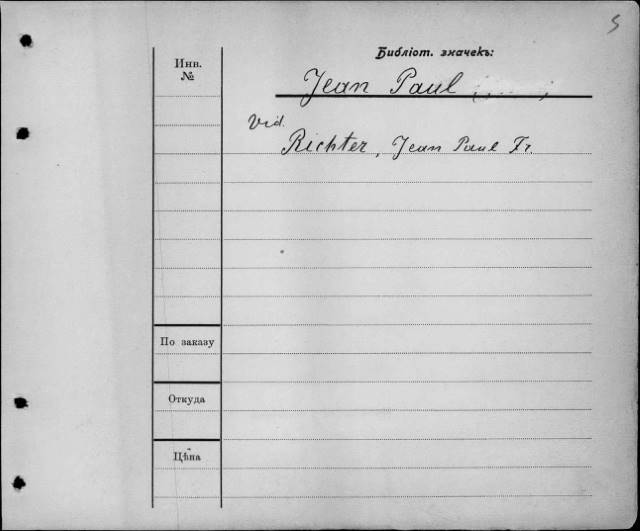 5
Библіот. значекъ:
Инв.
№
Jean Paul
Vid.
Richter, Jean Paul Fr.
По заказу
Откуда
Цѣна